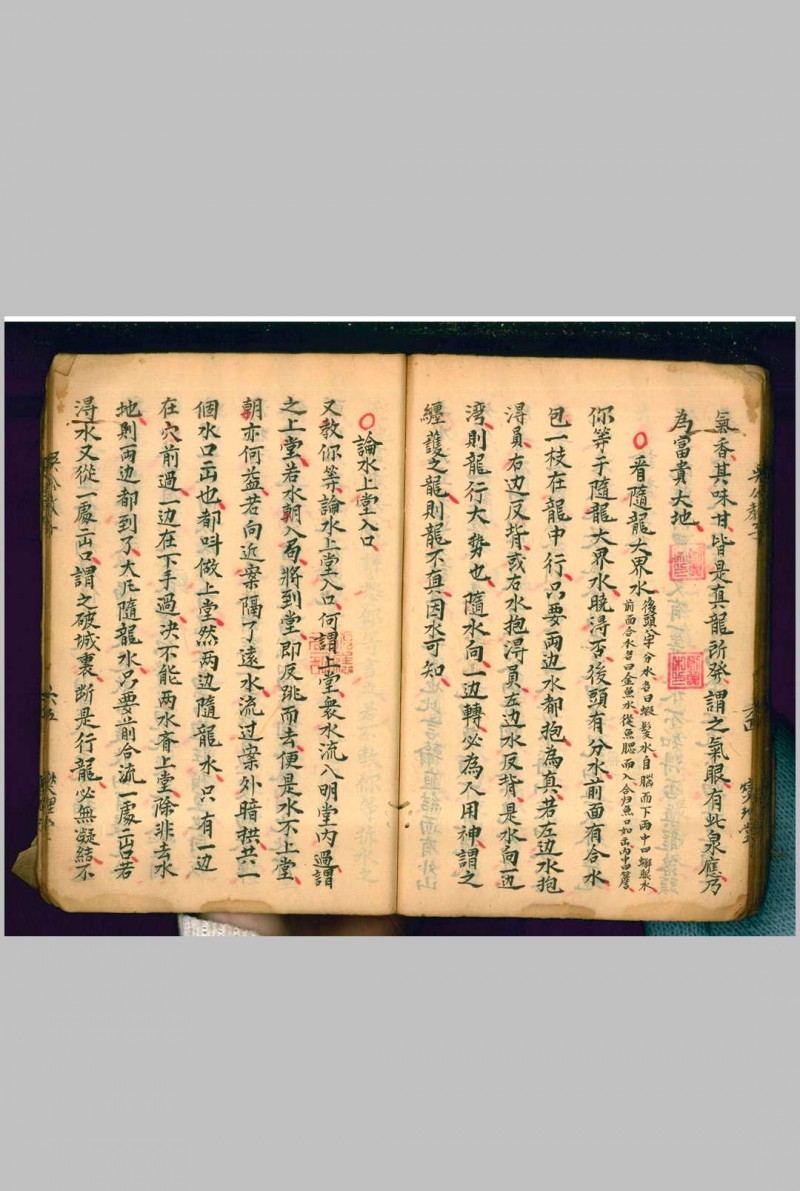 氣香其味甘皆是真龍所發謂之氣眼有此泉應乃
為富貴大地
看隨龍大界水
後頭八字分水名曰蝦鬚水自腦而下兩中曰蠏製水
前面合水名曰金魚水從魚腮而入合归魚口如出內中曰簷
你等于隨龍大界水曉得否後頭有分水前面有合水
包一枝在龍中行只要兩边水都抱為真若左边水抱
淂員右边反背或右水抱淂員左边水反背是水向一边
湾則龍行大勢也隨水向一边轉必為人用神謂之
纏護之龍則龍不真因水可知
論水上堂入口
又教你等論水上堂入口何謂上堂衆水流入明堂內過謂
之上堂若水朝入局將到堂即反跳而去便是水不上堂
朝亦何益若向近案隔了遠水流过案外暗拱共一
個水口出也都叫做上堂然两边隨龍水只有一边
在穴前過一边在下手過决不能两水齊上堂除非去水
地則两边都到了大凡隨龍水只要前合流一處出口若
淂水又從一處出口謂之破城裏断是行龍必無凝結不